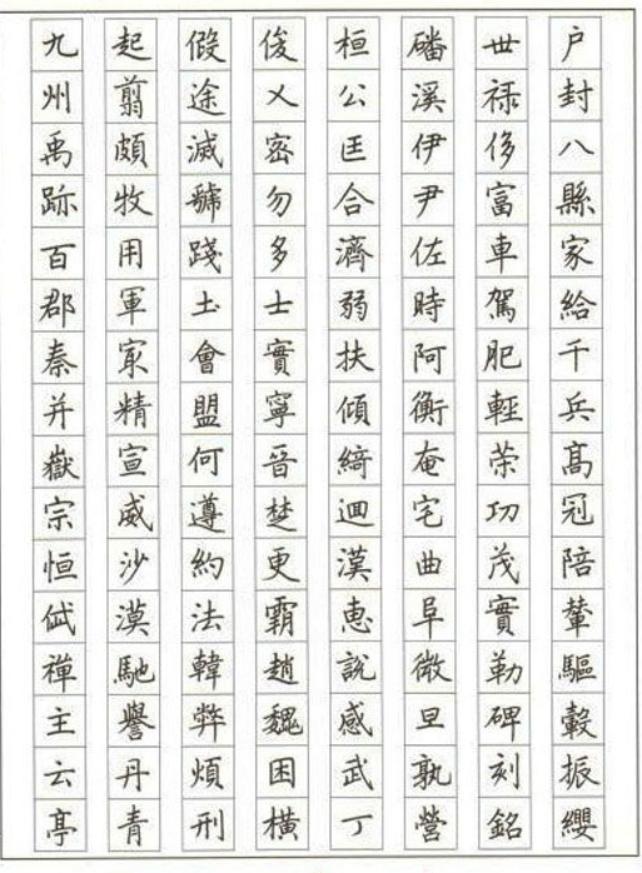 户封八縣家給千兵高冠陪輦驅轂振纓
世祿侈富車駕肥輕策功茂實勒碑刻銘
磻溪伊尹佐時阿衡奄宅曲阜微旦孰營
桓公匡合濟弱扶傾綺迴漢惠說感武丁
俊乂密勿多士寔寧晉楚更霸趙魏困橫
假途滅虢踐土會盟何遵約法韓弊煩刑
起翦頗牧用軍最精宣威沙漠馳譽丹青
九州禹跡百郡秦并嶽宗恒岱禪主云亭